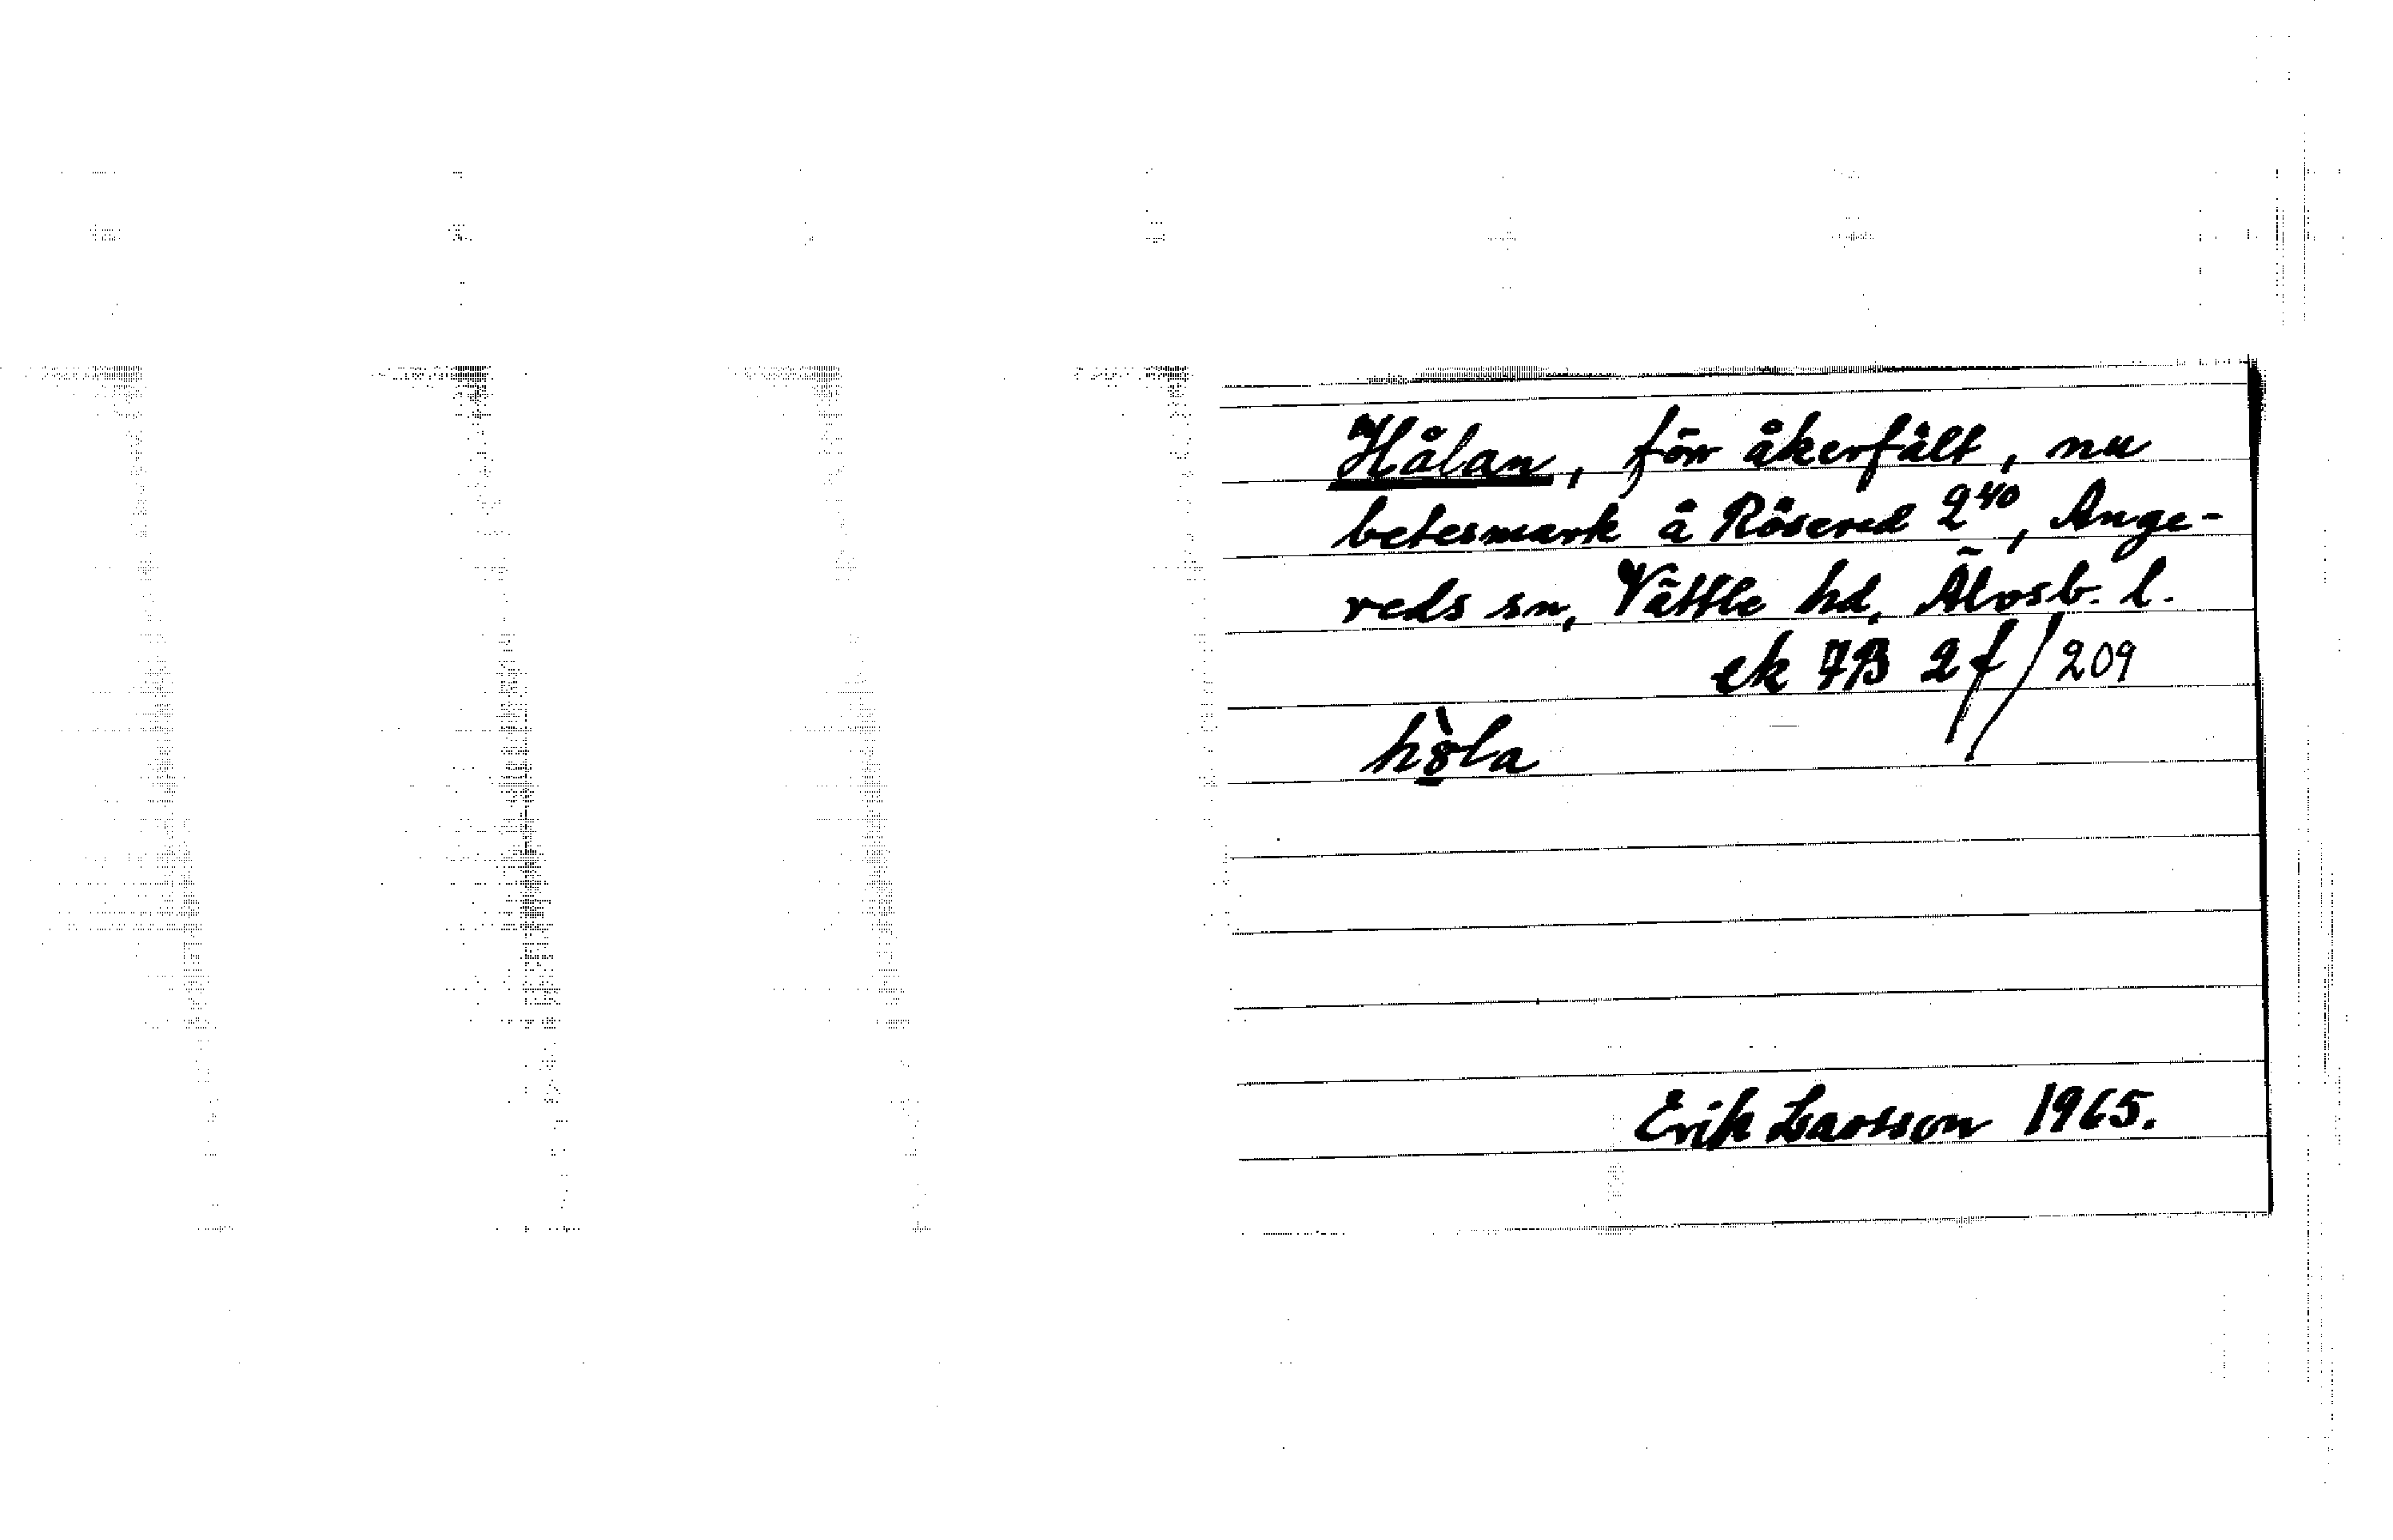 Hålan, förr åkerfält, nu
betesmark å Rösered 2⁴⁰, Ange-
reds sn, Vättle hd, Älvsb. l.
ek 7B 2f/209
hо̀̀la
Erik Larsson 1965.